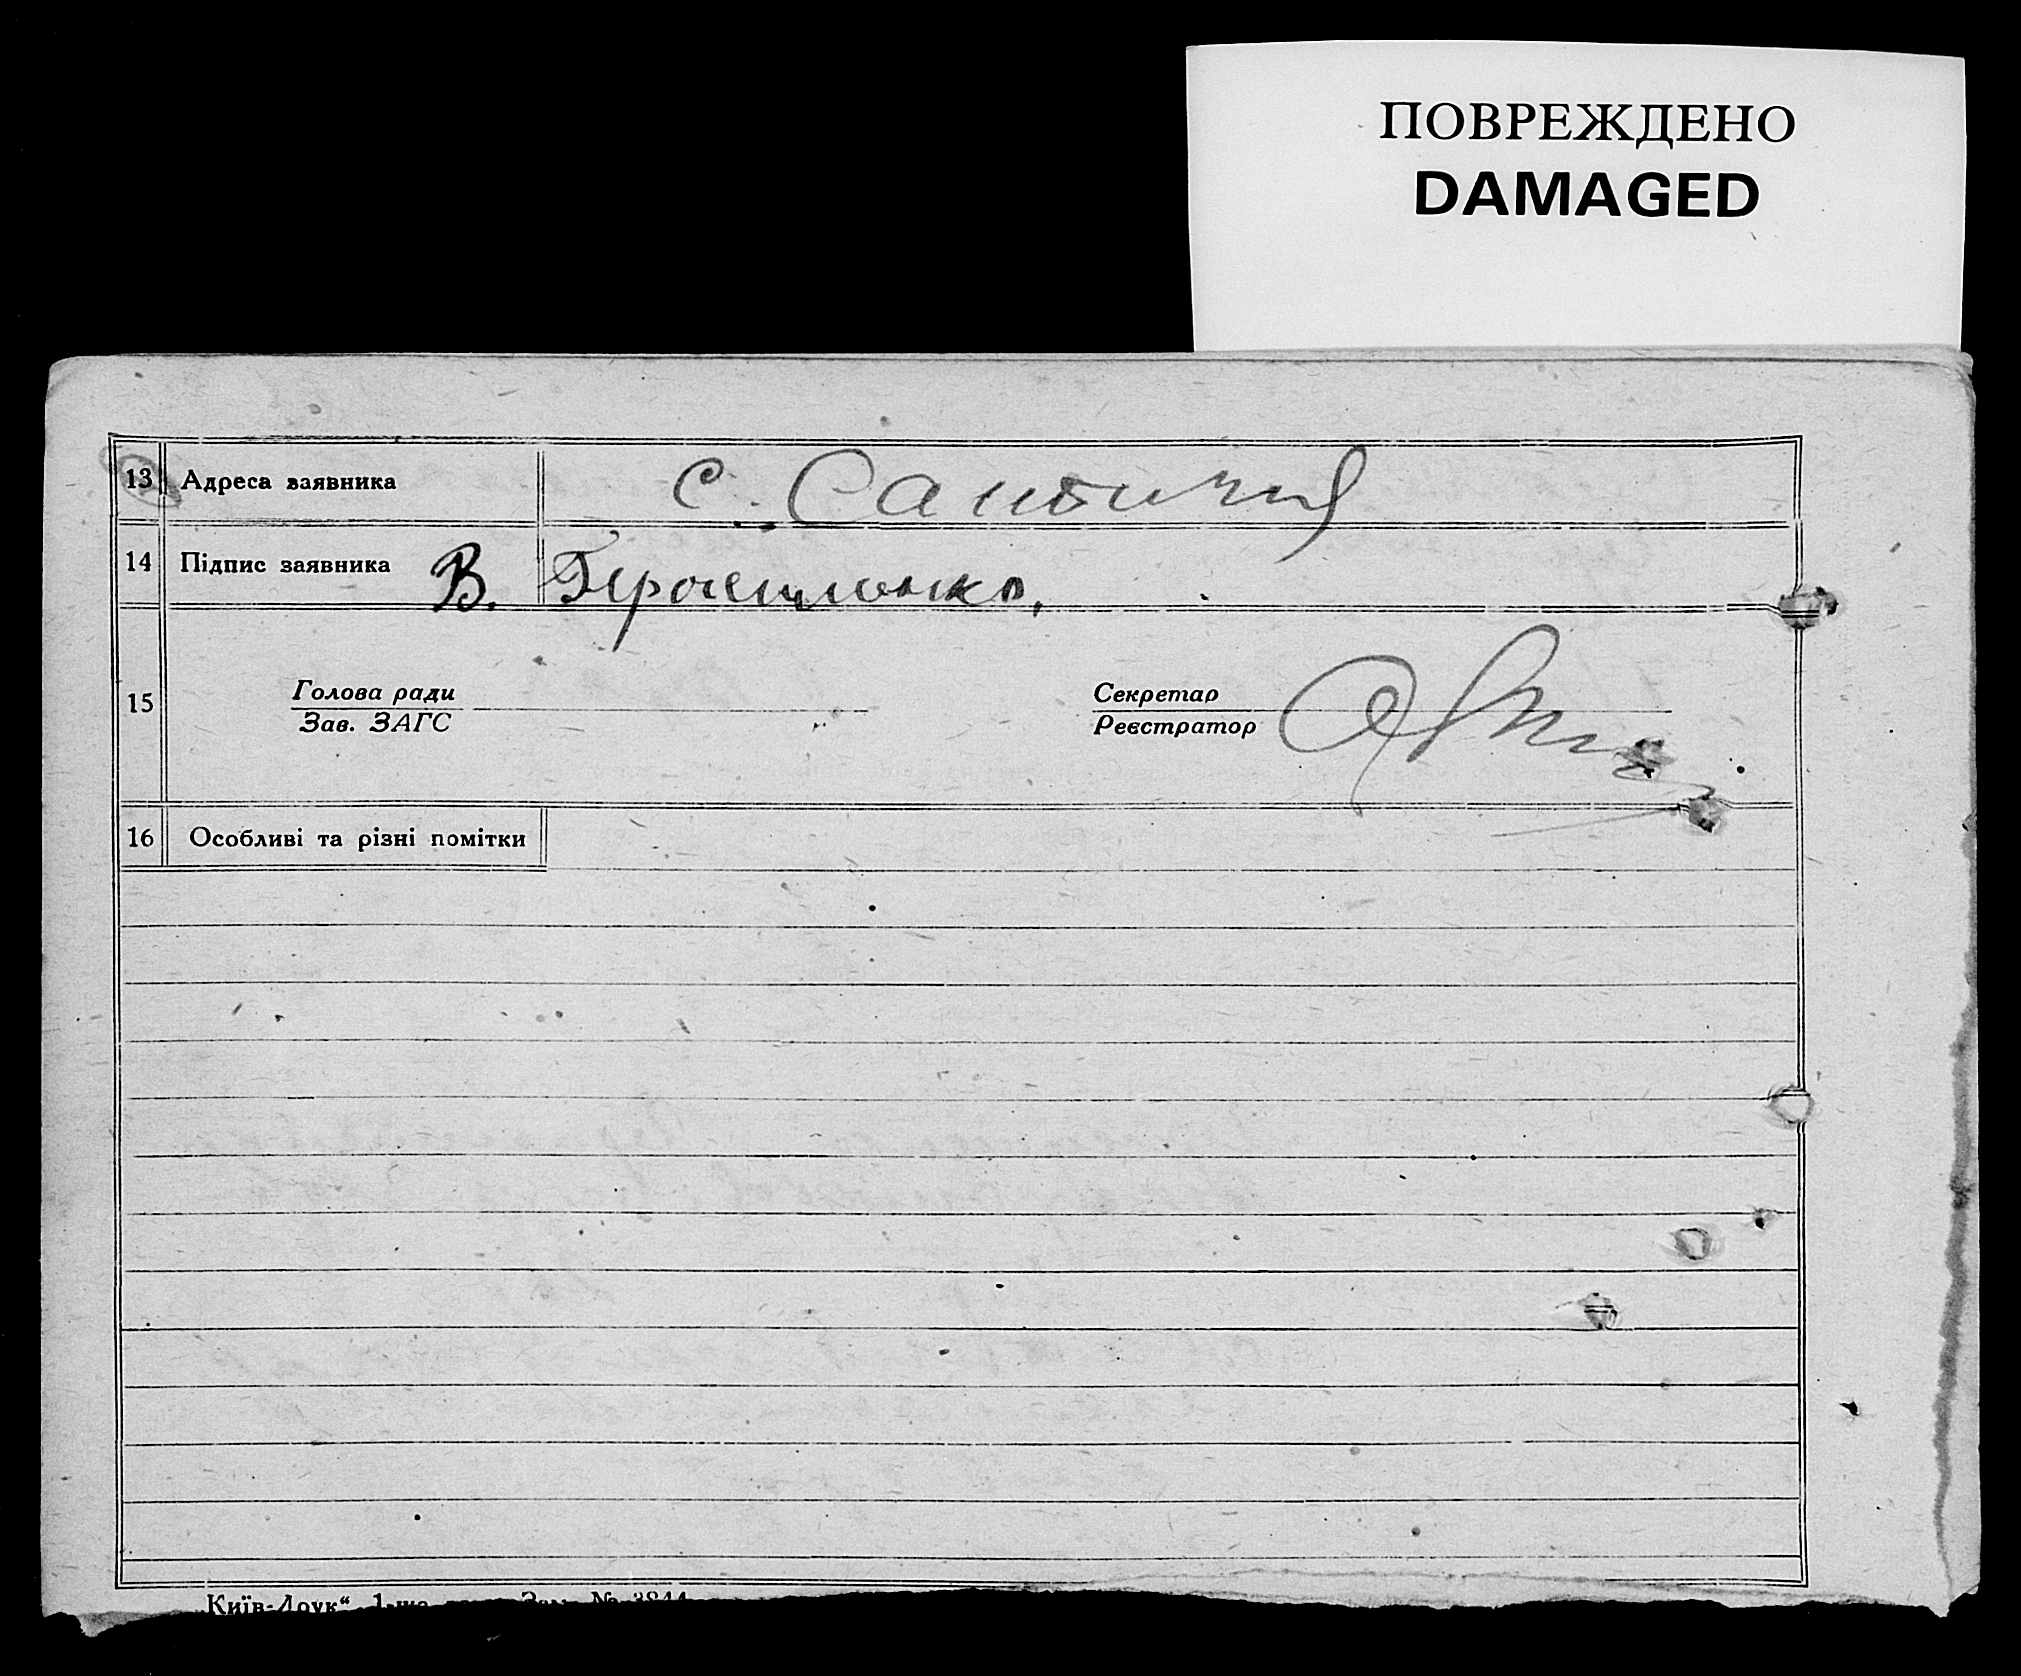 ПОВРЕЖДЕНО
DAMAGED
13 Адреса заявника с.
14 Підпис заявника В. Герощенко,
15 Голова ради Секретар
Зав. ЗАГС Реєстратор
16 Особливі та різні помітки
„Київ-Друк“ 1-ша Зам. № 3844